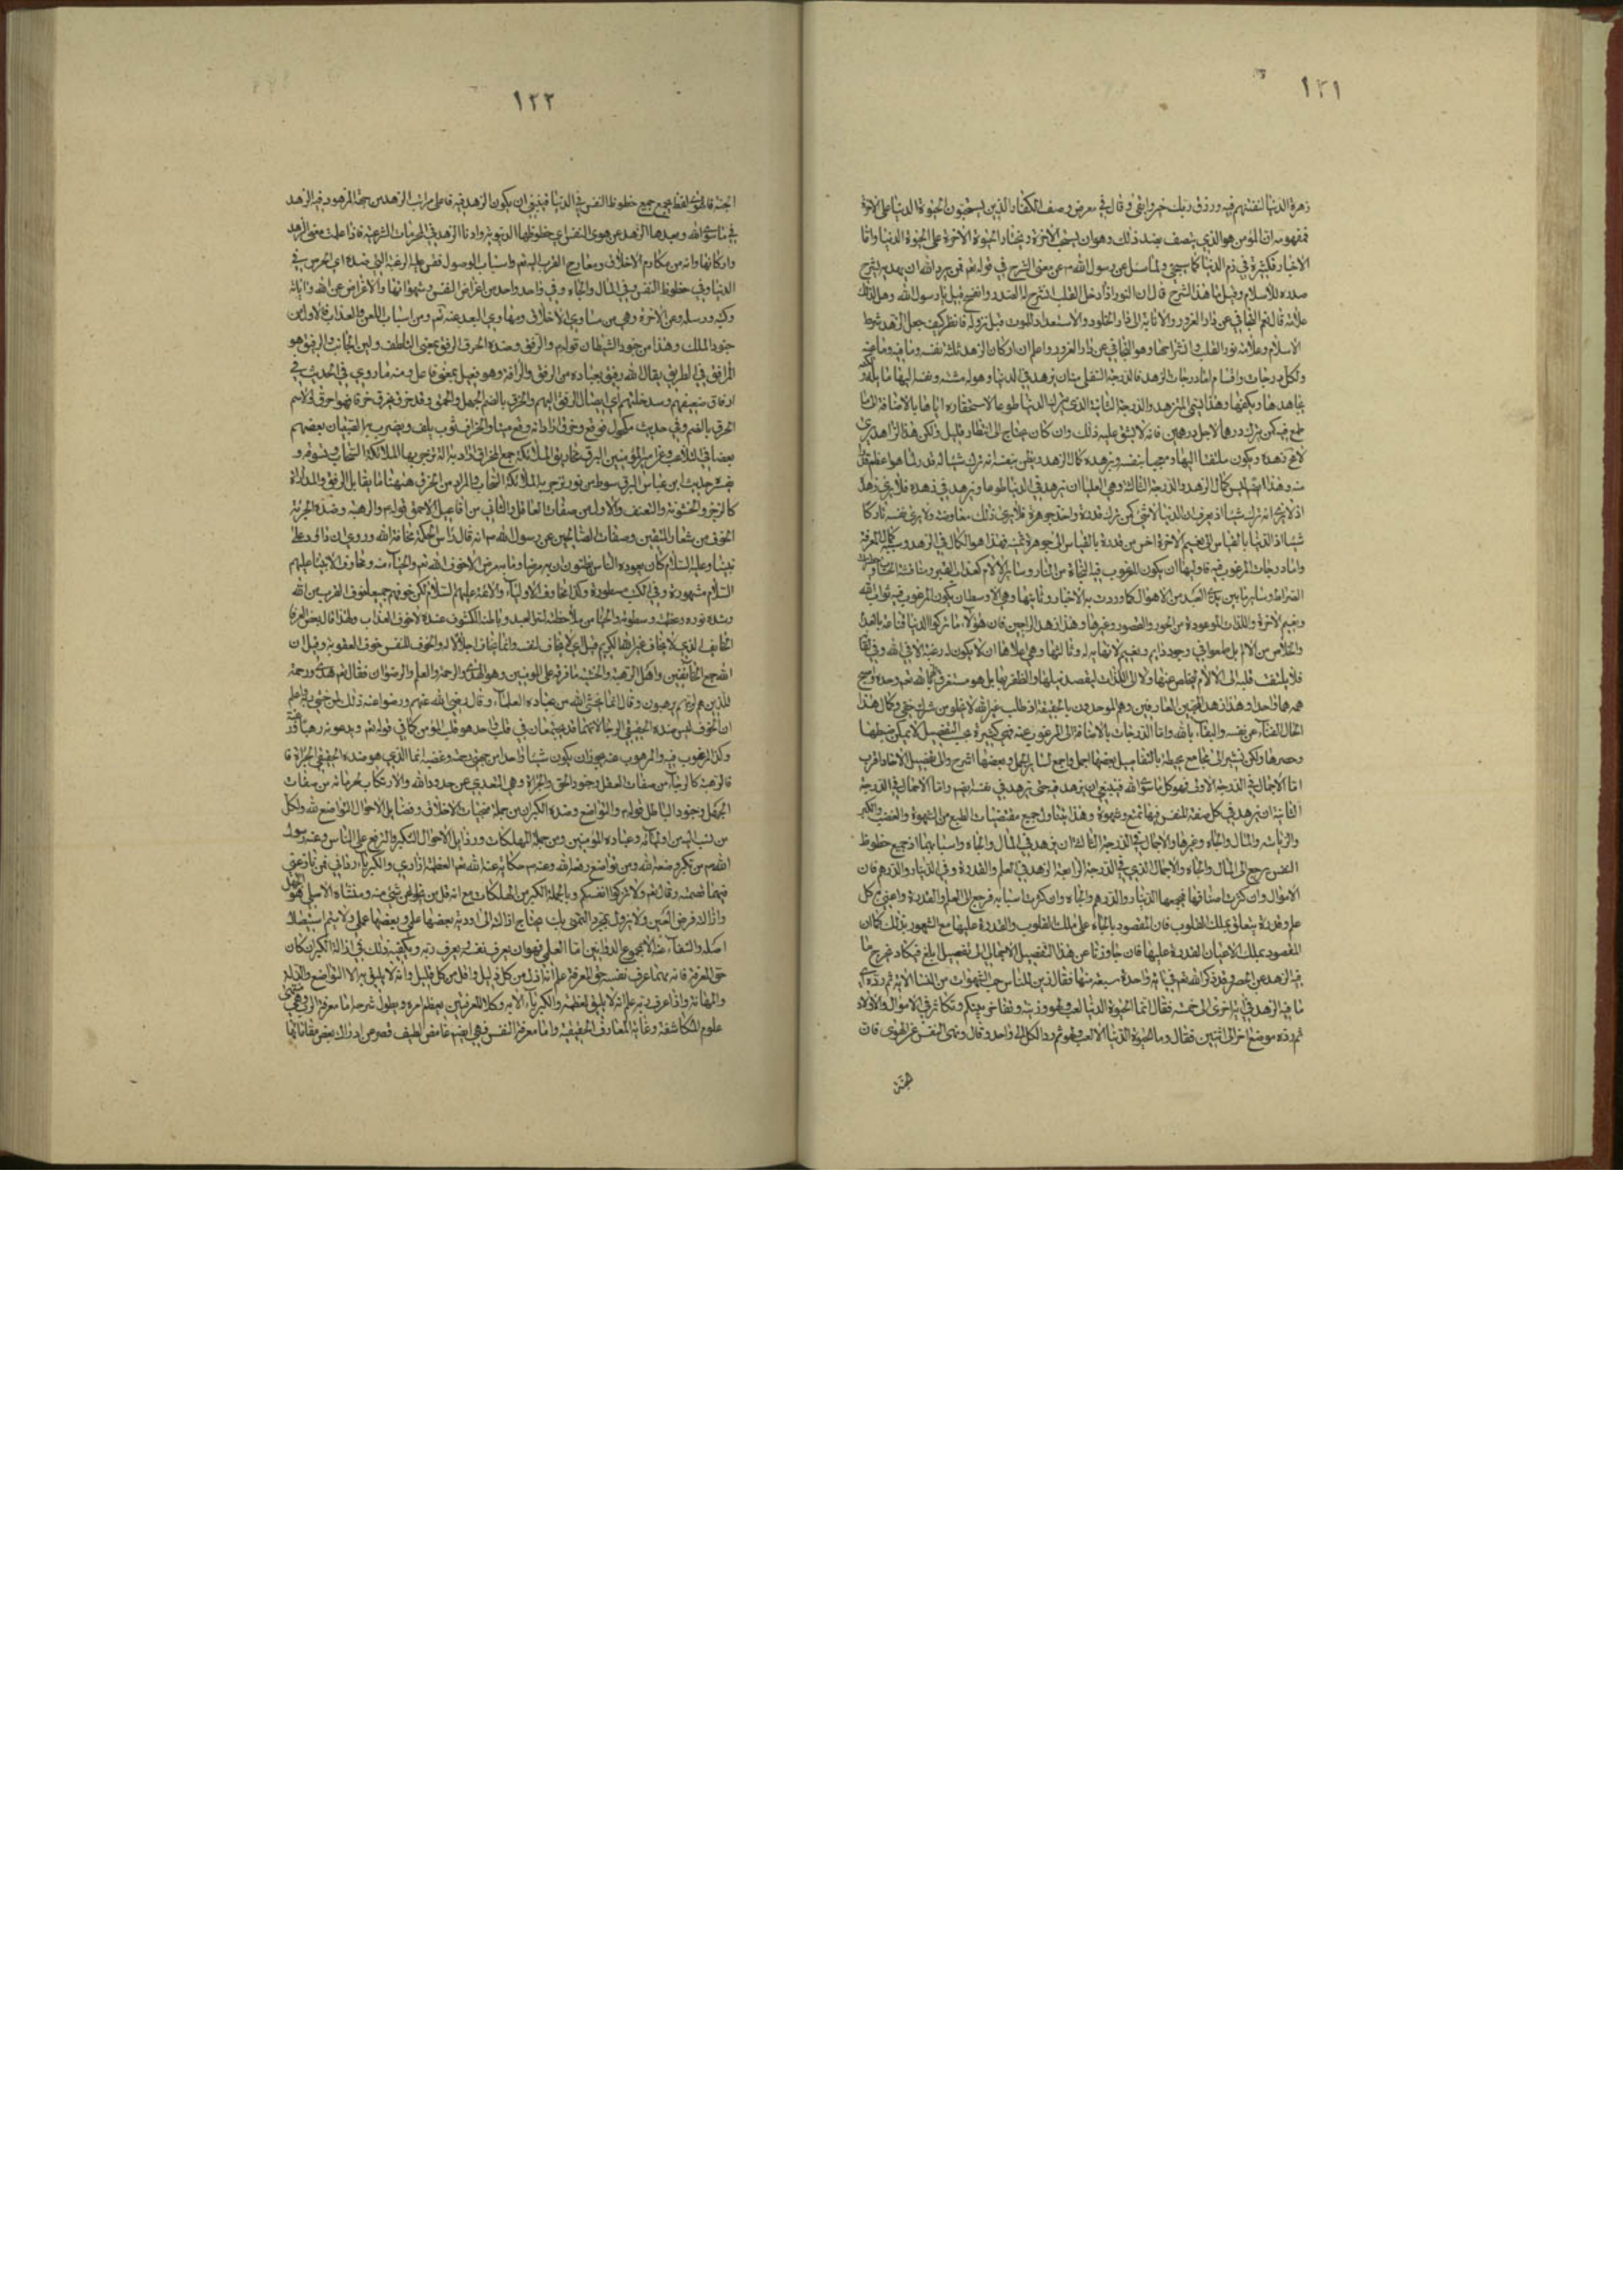 ١٢١
زهرة الدنيا لنفتنهم فيه ورزق ربك خير وابقى وقال في معرض وصف الكفار الذين يستحبون الحيوة الدنيا على الاخرة
فمفهومه ان المؤمن هو الذي يتصف بضد ذلك وهو ان يستحب الاخرة ويختار الحيوة الاخرة على الحيوة الدنيا واما
الاخبار فكثيرة في ذم الدنيا كما سيجئ ولما سئل عن رسول الله ص عن معنى الشرح في قوله تعم فمن يرد الله ان يهديه يشرح
صدره للاسلام وقيل ما هذا الشرح قال ان النور اذا دخل القلب انشرح له الصدر وانفسح قيل يا رسول الله وهل لذلك
علامة قال نعم التجافي عن دار الغرور والانابة الى دار الخلود والاستعداد للموت قبل نزوله فانظر كيف جعل الزهد شرط
الاسلام وعلامة نور القلب وانشراحها وهو التجافي عن دار الغرور واعلم ان اركان الزهد ثلث نفسه وما فيه وما عنه
ولكل درجات واقسام اما درجات الزهد فالدرجة السفلى منها ان يزهد في الدنيا وهو له مشته ونفسه اليها مايلة
يجاهدها ويكفها وهذا يسمى المتزهد والدرجة الثانية الذي يترك الدنيا طوعا لاستحقاره اياها بالاضافة الى ما
طمع فيه كمن يترك درهما لاجل درهمين فانه لا يشق عليه ذلك وان كان يحتاج الى انتظار قليل ولكن هذا الزاهد يرى
لا محة زهده ويكون ملتفتا اليها ومعجبا بنفسه وبزهده كمال الزهد ويظن بنفسه انه ترك شيئا له قدر لما هو اعظم قدرا
منه وهذا ايضا ليس كمال الزهد والدرجة الثالثة وهي العليا ان يزهد في الدنيا طوعا ويزهد في زهده فلا يرى زهده
اذ لا يرى انه ترك شيئا اذ يعرف ان الدنيا لا شئ كمن ترك قذرة واخذ جوهرة فلا يرى ذلك معاوضة ولا يرى نفسه تاركا
شيئا اذ الدنيا بالقياس الى نعيم الاخرة اخس من قذرة بالقياس الى جوهرة ثمينة فهذا هو الكمال في الزهد وسببه كمال المعرفة
واما درجات المرغوب فيه فاولها ان يكون المرغوب فيه النجاة من النار وسائر الالام كعذاب القبر ومناقشة الحساب وخطر
الصراط وساير ما بين يدي العبد من الاهوال كما وردت به الاخبار وثانيها وهي الاوسط ان يكون المرغوب فيه ثواب الله
ونعيم الاخرة واللذات الموعودة من الحور والقصور وغيرها وهذا زهد الراجين فان هؤلاء ما تركوا الدنيا قناعة بالعدم
والخلاص من الالم بل طمعوا في وجود دايم ونعيم لا نهاية له وثالثها وهي اعلاها ان لا يكون له رغبة الا في الله وفي لقائه
فلا يلتفت قلبه الى الالام ليخلص عنها ولا الى اللذات ليقصد نيلها والظفر بها بل هو مستغرق الهم بالله تعم وحده واصبح
همه هما واحدا وهذا زهد المحبين العارفين وهم الموحدون بالحقيقة اذ طلب غير الله لا يخلو من شرك خفي وكمال هذا
الحال الفناء عن نفسه والبقاء بالله واما الدرجات بالاضافة الى المرغوب عنه فهي كثيرة بحسب التفصيل لا يمكن ضبطها
وحصرها ولكن نشير الى مجامع محيطة بالتفاصيل بعضها اجمل واجمع لسائر الجمل وبعضها اشرح والى تفصيل الاحاد اقرب
اما الاجمال في الدرجة الاولى فهو كل ما سوى الله فينبغي ان يزهد فيه حتى يزهد في نفسه ايضم واما الاجمال في الدرجة
الثانية ان يزهد في كل صفة للنفس فيها تمتع وشهوة وهذا يتناول جميع مقتضيات الطبع من الشهوة والغضب والكبر
والرياسة والمال والجاه وغيرها والاجمال في الدرجة الثالثة ان يزهد في المال والجاه واسبابهما اذ جميع حظوظ
النفس يرجع الى المال والجاه والاجمال الذي في الدرجة الرابعة الزهد في العلم والقدرة وفي الدينار والدرهم فان
الاموال وان كثرت اصنافها فيجمعها الدينار والدرهم والجاه وان كثرت اسبابه فيرجع الى العلم والقدرة واعني به كل
علم وقدرة يتعلق بملك القلوب فان المقصود بالجاه على ملك القلوب والقدرة عليها مع الشعور بذلك كما ان
المقصود بملك الاعيان القدرة عليها فان جاوزتا عن هذا التفصيل الاجمالي الى تفصيل ابلغ فيكاد يخرج ما
فيه الزهد عن الحصر وقد ذكر الله تعم في اية واحدة سبعة منها فقال زين للناس حب الشهوات من النساء الاية ثم رده
ما فيه الزهد في اية اخرى الى خمسة فقال انما الحيوة الدنيا لعب ولهو وزينة وتفاخر بينكم وتكاثر في الاموال والاولاد
ثم رده موضع اخر الى اثنين فقال وما الحيوة الدنيا الا لعب ولهو ثم رد الكل الى واحد وقال ونهى النفس عن الهوى فان
الجنة
١٢٢
الجنة فالهوى لفظ يجمع جميع حظوظ النفس في الدنيا فينبغي ان يكون الزهد فيه فاعلى مراتب الزهد من جهة المزهود فيه الزهد
في ما سوى الله وبعدها الزهد عن هوى النفس اي حظوظها الدنيوية وادناها الزهد في المحرمات الشرعية فاذا علمت معنى الزهد
واركانها وانه من مكارم الاخلاق ومعارج القرب اليه تعم واسباب الوصول فقس عليه الرغبة التي ضده اي الحرص في
الدنيا وفي حظوظ النفس وفي المال والجاه وفي واحد واحد من اغراض النفس وشهواتها والاعراض عن الله واياته
وكتبه ورسله وعن الاخرة وهي من مساوي الاخلاق ومهاوي البعد عنه تعم ومن اسباب اللعن والعذاب فالاول من
جنود الملك وهذا من جنود الشيطان قوله ع والرفق وضده الخرق الرفق بمعنى التلطف ولين الجانب والرفيق هو
المرافق في الطريق يقال الله رفيق بعباده من الرفق والرافة وهو فعيل بمعنى فاعل ومنه ما روي في الحديث في
ارفاق ضعيفهم وسد خلتهم اي ايصال الرفق اليهم والخرق بالضم الجهل والحمق وقد خرق يخرق خرقا فهو اخرق والاسم
الخرق بالضم وفي حديث مكحول فوقع وخرق اراد انه وقع ميتا والمخراق ثوب يلف ويضرب به الصبيان بعضهم
بعضا في حديث علي ع امير المؤمنين البرق مخاريق الملائكة جمع مخراق اراد به الة تزجر بها الملائكة السحاب وتسوقه و
يفسره حديث ابن عباس البرق سوط من نور تزجر به الملائكة السحاب والمراد من الخرق ههنا ما يقابل الرفق والمداراة
كالزجر والخشونة والتعنف والاول من صفات العاقل والثاني من افاعيل الاحمق قوله ع والرهبة وضده الجرئة
الخوف من شعار المتقين وصفات الصالحين عن رسول الله ص انه قال راس الحكمة مخافة الله وروي ان داود على
نبينا وعليه السلام كان يعوده الناس يظنون ان به مرضا وما به مرض الا خوف الله تعم والحياء منه ومخاوف الانبيا عليهم
السلام مشهورة وفي الكتب مسطورة وكذا مخاوف الاولياء والائمة عليهم السلام لكن خوفهم جميعا خوف القرب من الله
وشدة نوره وعظمته وسطوته والحياء من ملاحظته لعبد وباطنه المكشوف عنده لا خوف العذاب ولهذا قال بعض العرفاء
الخايف الذي لا يخاف غير الله الكريم قيل اي لا يخاف لنفسه وانما يخاف اجلالا له والخوف للنفس خوف العقوبة وقيل ان
الله جمع الخائفين واهل الرهبة والخشية ما فرقه على المؤمنين وهو الهدى والرحمة والعلم والرضوان فقال تعم هدى ورحمة
للذين هم لربهم يرهبون وقال انما يخشى الله من عباده العلماء وقال رضي الله عنهم ورضوا عنه ذلك لمن خشي ربه واعلم
ان الخوف ليس ضده الحقيقي الرجا لانهما قد يجتمعان في قلب واحد هو قلب المؤمن كما في قوله تعم ويدعوننا رهبا ورغبة
وكذا المرغوب فيه والمرهوب عنه يجوز ان يكون شيئا واحدا من جهتي رحمته وغضبه انما الذي هو ضده الحقيقي الجراة فا
فالرهبة كالرجاء من صفات العقل وجنود الحق والجراة وهي التعدي عن حدود الله والارتكاب لحرماته من صفات
الجهل وجنود الباطل قوله ع والتواضع وضده الكبر ان من جملة منجيات الاخلاق وفضايل الاحوال التواضع لله ولكل
من نسب اليه من اوليائه وعباده المؤمنين ومن جملة المهلكات ورذايل الاحوال التكبر والترفع على الناس وعن رسول
الله ص من تكبر وضعه الله ومن تواضع رفعه الله وعنه ص حكاية عن الله تعم العظمة ازاري والكبرياء ردائي فمن نازعني
فيهما قصمته وقال تعم ولا تزكوا انفسكم وبالجملة الكبر من المهلكات مع انه قل من يخلو عن شئ منه ومنشاه الاصلي هو الجهل
وازالته فرض العين ولا يزول بمجرد التمني بل يحتاج ازالته الى ادوية بعضها علمي وبعضها عملي ولا يتم استيصال
اصله والشفاء منه الا بمجموع الدوائين اما العلمي فهو ان يعرف نفسه ويعرف ربه ويكفيه ذلك في ازالة الكبر ان كان
حق المعرفة فانه مهما عرف نفسه حق المعرفة علم انه اذل من كل ذليل واقل من كل قليل وانه لا يليق به الا التواضع والذلة
والمهانة واذا عرف ربه علم انه لا يليق العظمة والكبرياء الا به وكلا المعرفتين يعظم امره ويطول شرحه اما معرفة الرب فهي منتهى
علوم المكاشفة وغاية المعارف الحقيقية واما معرفة النفس فهي ايضم غامض لطيف قصر عن ادراك بعض مقاماتها